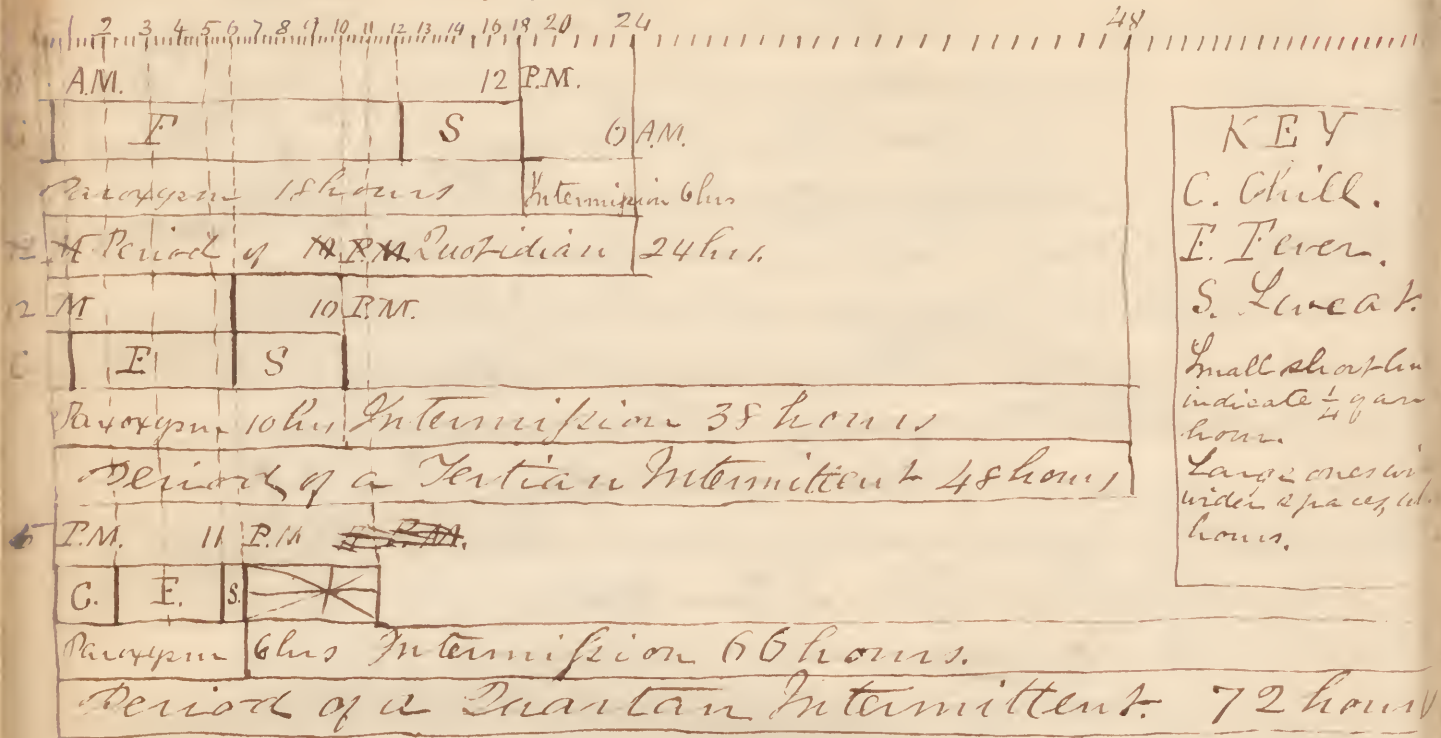 2 3 4 5 6 7 8 9 10 11 12 13 14 16 18 20 24 48
A.M. 12 P.M.
C F S 6 A.M.
Paroxysm 18 hours Intermission 6 hrs
Period of Quotidian 24 hrs.
12 M 10 P.M.
C F S
Paroxysm 10 hrs Intermission 38 hours
Period of a Tertian Intermittent 48 hours
5 P.M. 11 P.M.
C. F. S.
Paroxysm 6 hrs Intermission 66 hours.
Period of a Quartan Intermittent. 72 hours
KEY
C. Chill.
F. Fever.
S. Sweat.
Small short
indicate 1/4 of an
hour.
Large ones
wider spaces,
hours.